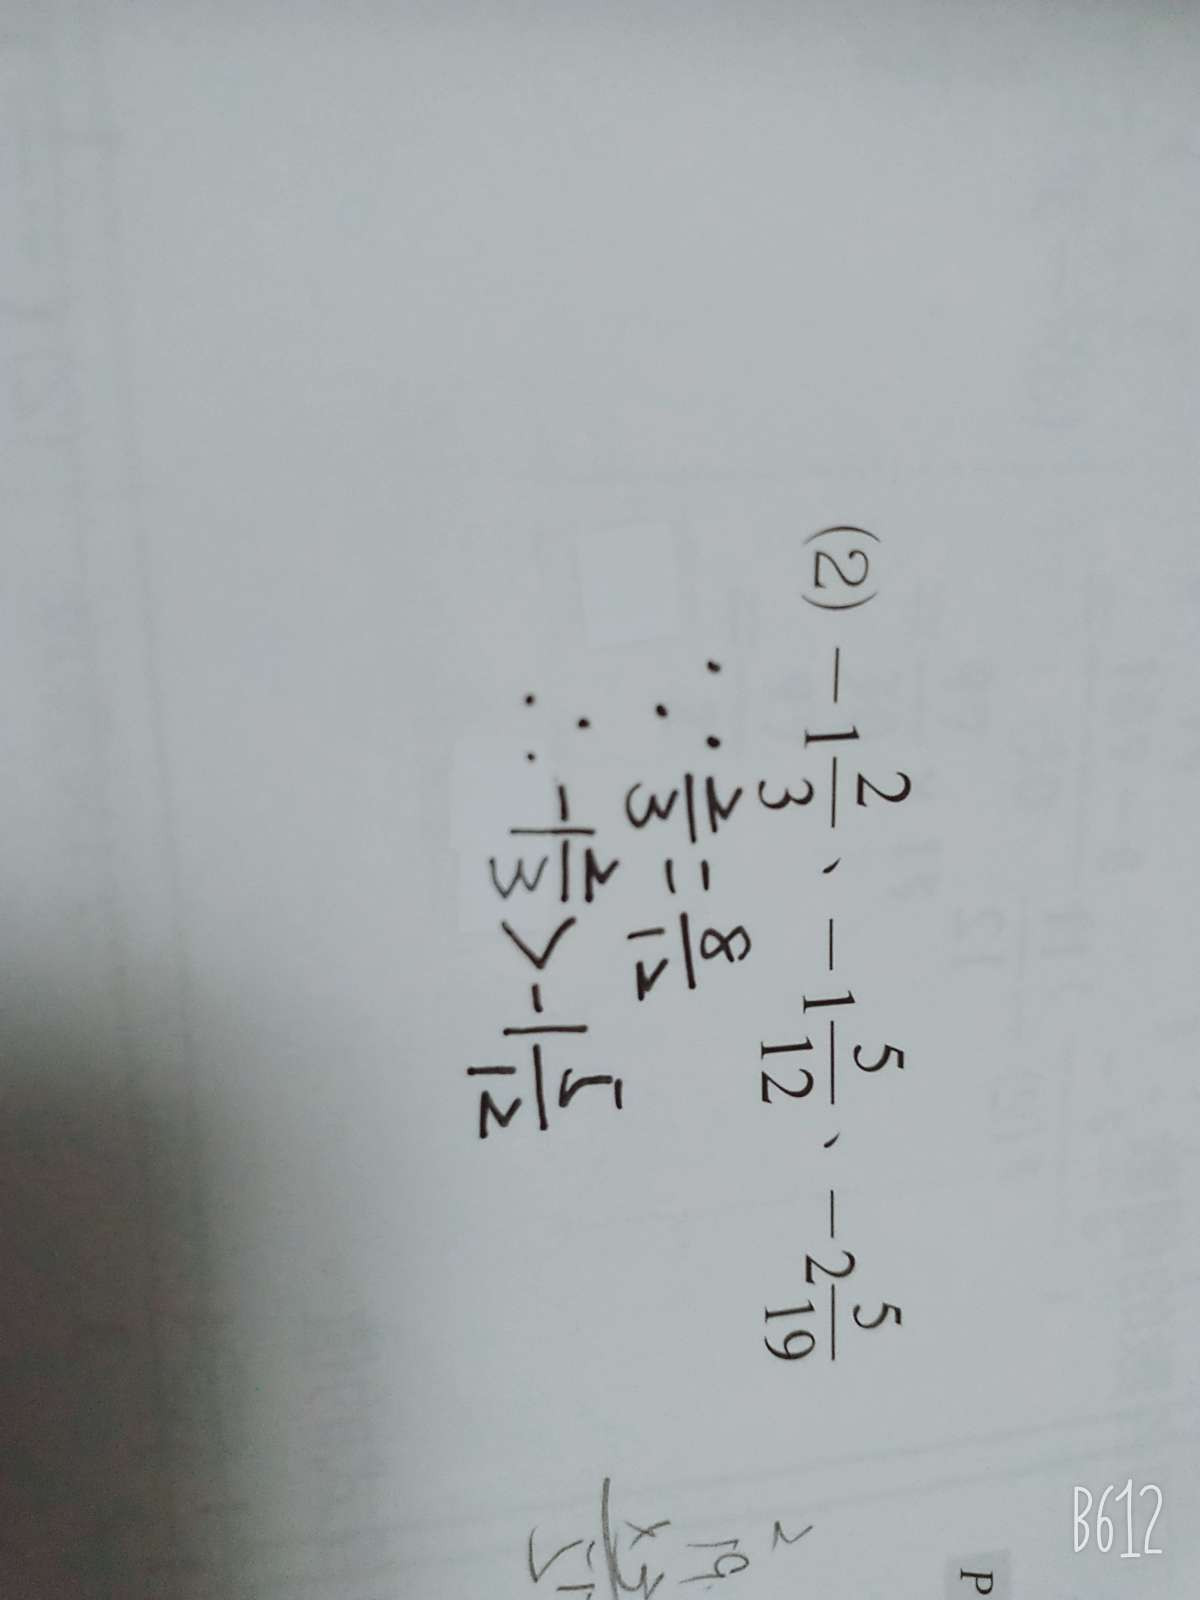 (2) -1 2/3、-1 5/12、-2 5/19
∵ 2/3 = 8/12
∴ -1 2/3 > -1 5/12
P
B612